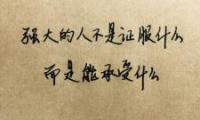 强大的人不是证服什么
而是能承受什么